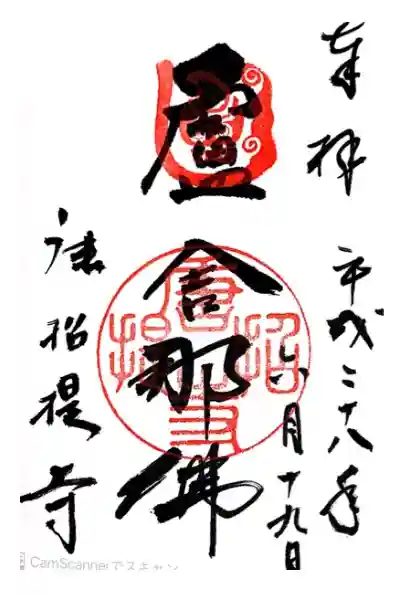 奉拝
平成二十八年
六月十九日
盧舍那佛
唐招提寺
唐招提寺
CamScannerでスキャン